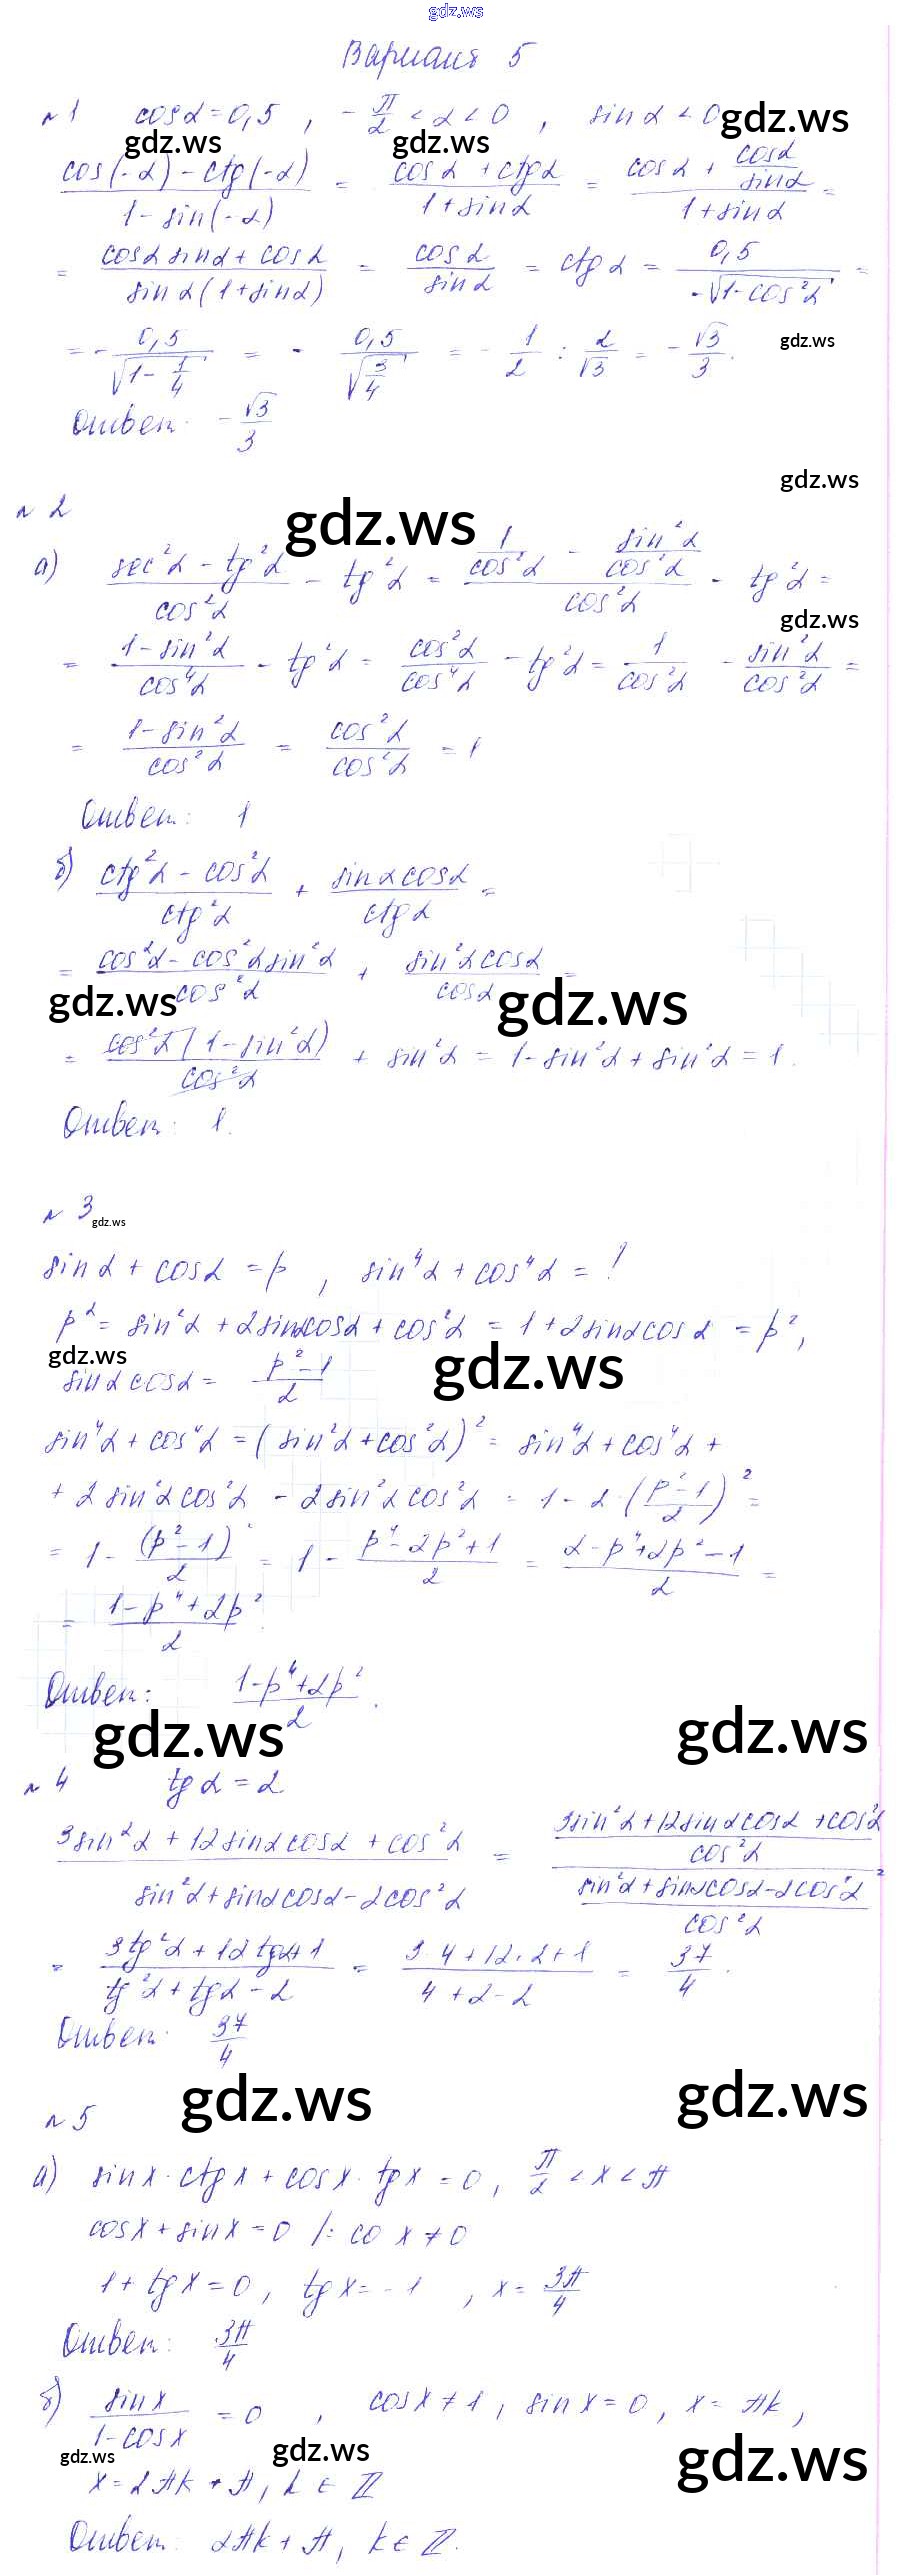 gdz.ws
Вариант 5
№1 cosα = 0,5 , -π/2 < α < 0 , sinα < 0
gdz.ws
gdz.ws gdz.ws
(cos(-α) - ctg(-α))/(1 - sin(-α)) = (cosα + ctgα)/(1 + sinα) = (cosα + cosα/sinα)/(1 + sinα) =
= (cosα sinα + cosα)/(sinα(1 + sinα)) = cosα/sinα = ctgα = 0,5/(-√(1 - cos²α)) =
= - 0,5/√(1 - 1/4) = - 0,5/√(3/4) = - 1/2 : 2/√3 = - √3/3.
gdz.ws
Ответ: - √3/3
gdz.ws
№ 2
gdz.ws
а) (sec²α - tg²α)/cos²α - tg²α = (1/cos²α - sin²α/cos²α)/cos²α - tg²α =
gdz.ws
= (1 - sin²α)/cos⁴α - tg²α = cos²α/cos⁴α - tg²α = 1/cos²α - sin²α/cos²α =
= (1 - sin²α)/cos²α = cos²α/cos²α = 1
Ответ: 1
б) (ctg²α - cos²α)/ctg²α + sinα cosα/ctgα =
= (cos²α - cos²α sin²α)/cos²α + sin²α cosα/cosα =
gdz.ws gdz.ws
= cos²α(1 - sin²α)/cos²α + sin²α = 1 - sin²α + sin²α = 1.
Ответ: 1.
№ 3
gdz.ws
sinα + cosα = p , sin⁴α + cos⁴α = ?
p² = sin²α + 2sinαcosα + cos²α = 1 + 2sinαcosα = p²,
gdz.ws gdz.ws
sinαcosα = (p² - 1)/2
sin⁴α + cos⁴α = (sin²α + cos²α)² = sin⁴α + cos⁴α +
+ 2sin²αcos²α - 2sin²αcos²α = 1 - 2·((p² - 1)/2)² =
= 1 - (p² - 1)²/2 = 1 - (p⁴ - 2p² + 1)/2 = (2 - p⁴ + 2p² - 1)/2 =
= (1 - p⁴ + 2p²)/2.
Ответ: (1 - p⁴ + 2p²)/2.
gdz.ws gdz.ws
№ 4 tgα = 2
(3sin²α + 12sinαcosα + cos²α)/(sin²α + sinαcosα - 2cos²α) = ((3sin²α + 12sinαcosα + cos²α)/cos²α)/((sin²α + sinαcosα - 2cos²α)/cos²α) =
= (3tg²α + 12tgα + 1)/(tg²α + tgα - 2) = (3·4 + 12·2 + 1)/(4 + 2 - 2) = 37/4.
Ответ: 37/4
gdz.ws gdz.ws
№ 5
а) sinx · ctgx + cosx · tgx = 0, π/2 < x < π
cosx + sinx = 0 /: co x ≠ 0
1 + tgx = 0, tgx = -1 , x = 3π/4
Ответ: 3π/4
б) sinx/(1 - cosx) = 0 , cosx ≠ 1, sinx = 0, x = πk,
gdz.ws gdz.ws gdz.ws
x = 2πk + π, k ∈ ℤ
Ответ: 2πk + π, k ∈ ℤ.